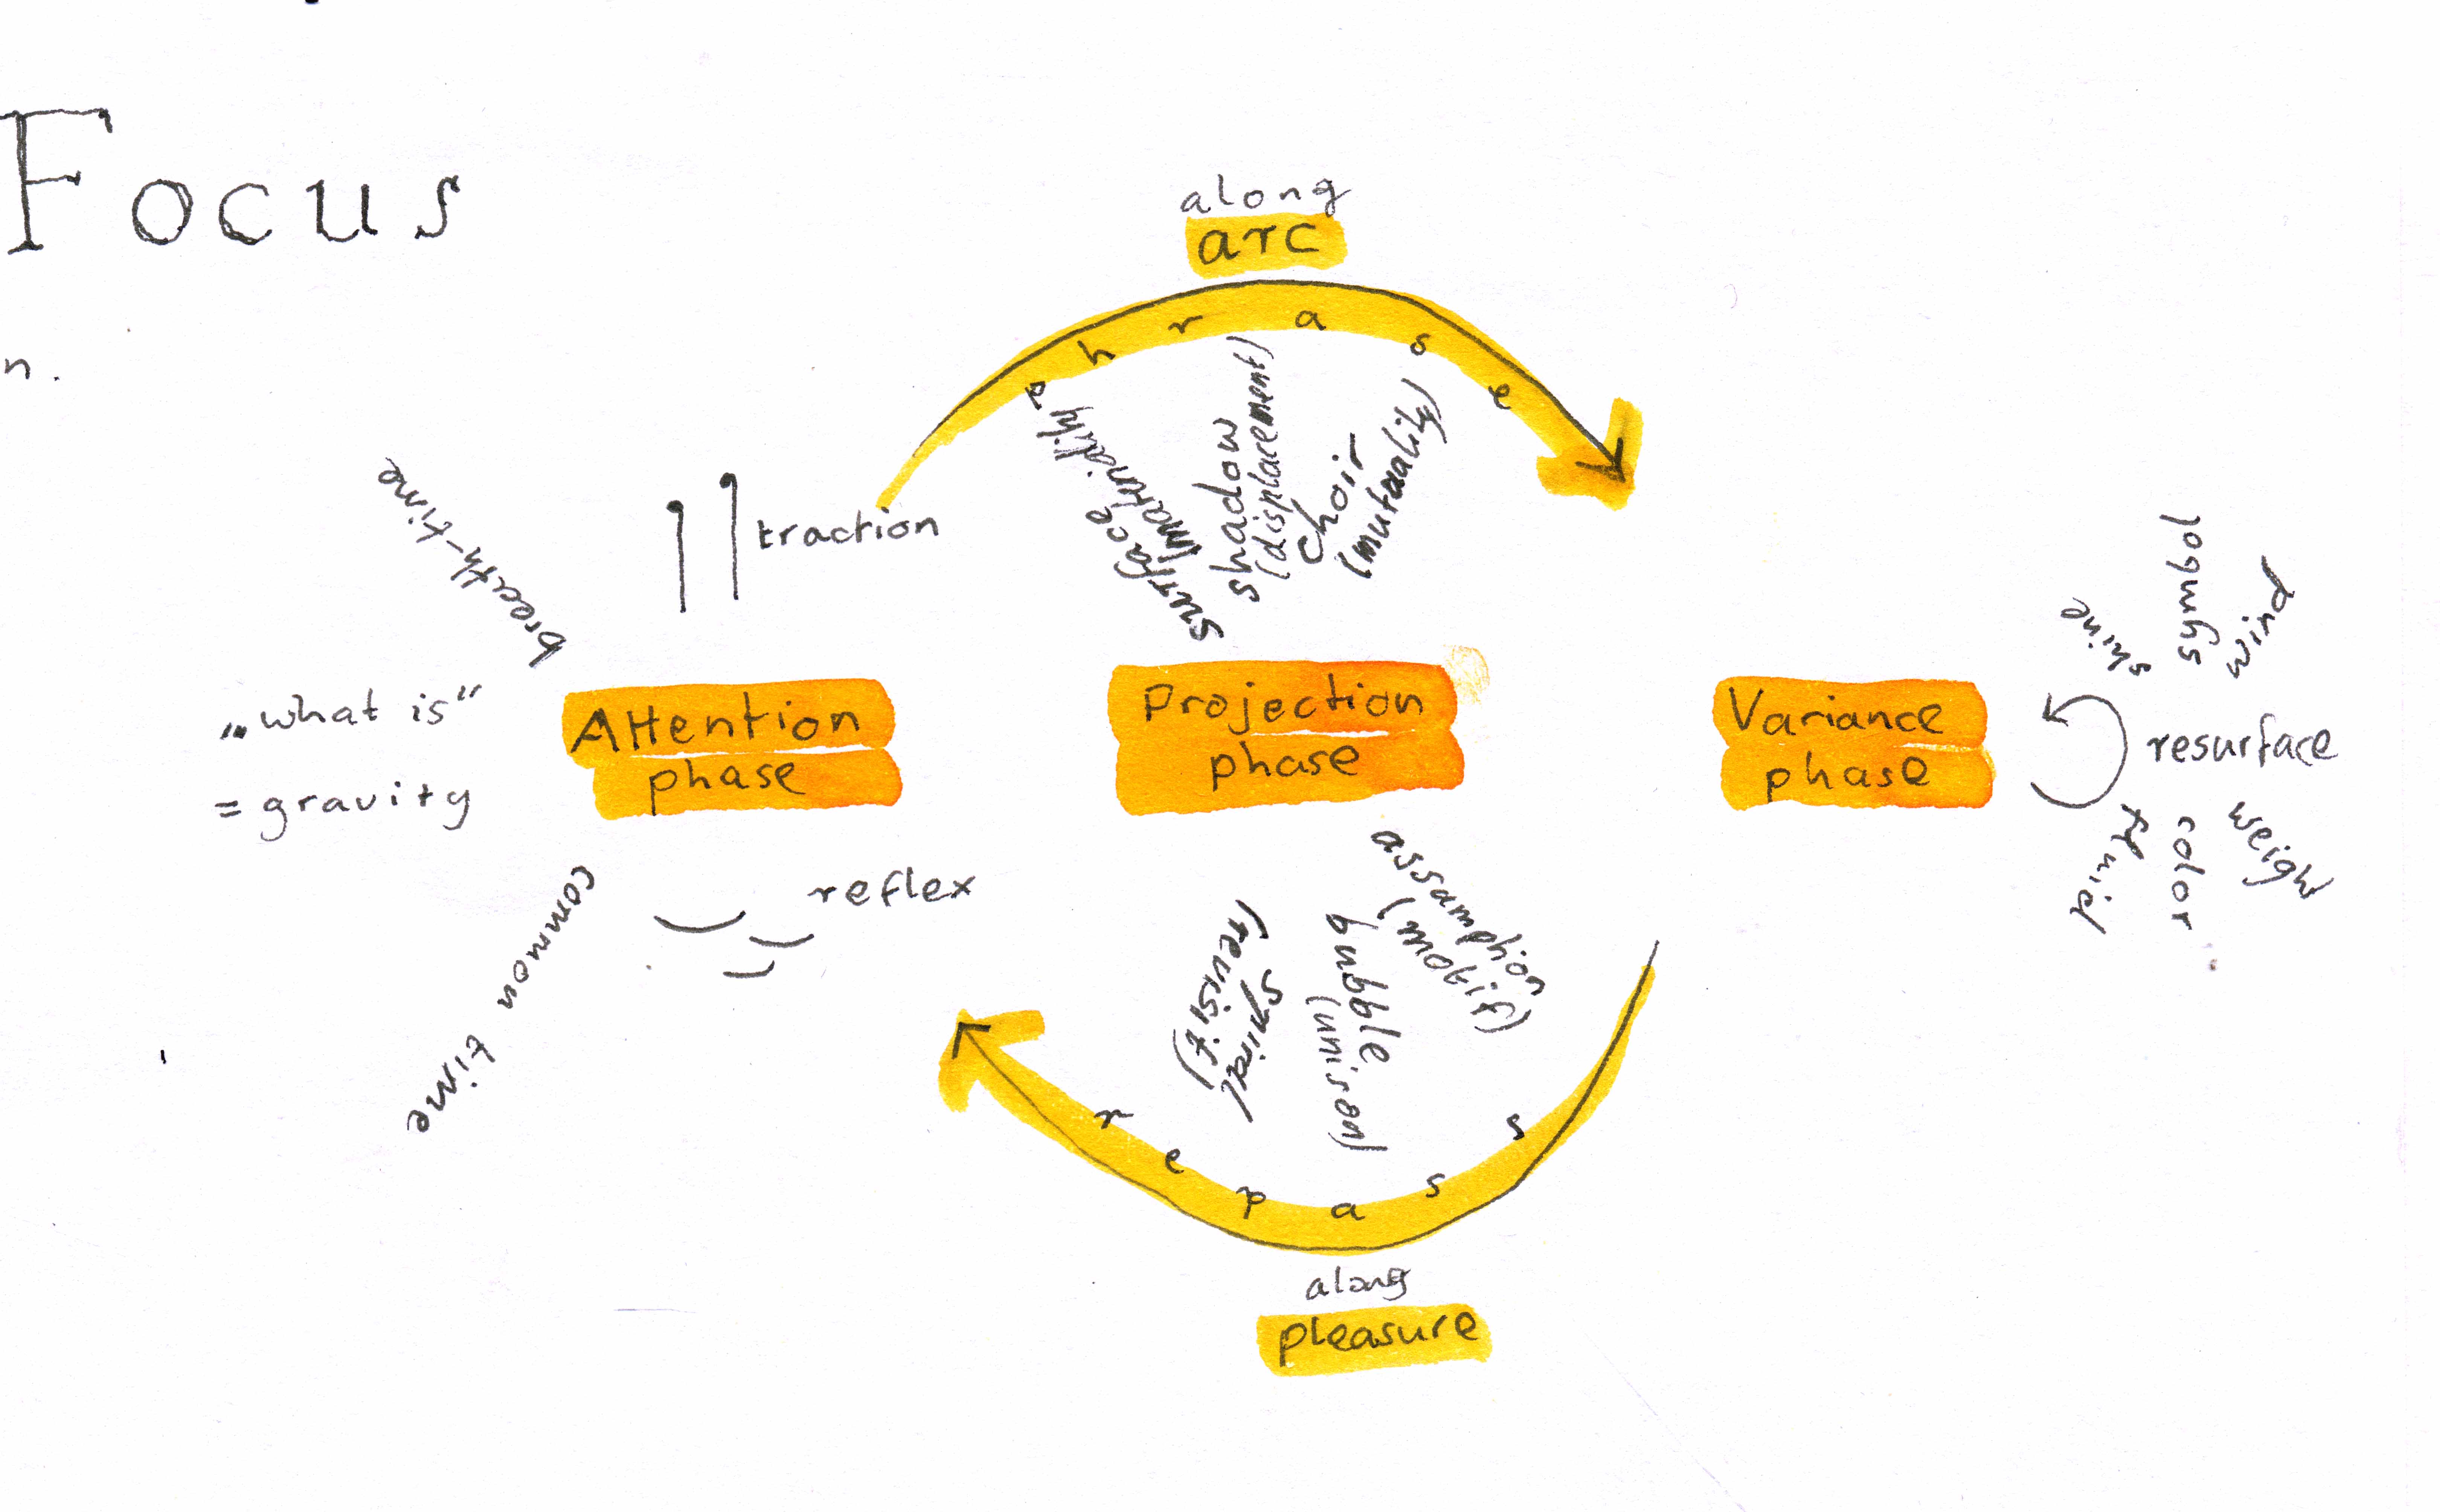 Focus
n.
along
arc
phrase
surface
(materiality)
shadow
(displacement)
choir
(mutuality)
breath-time
traction
„what is"
= gravity
Attention
phase
Projection
phase
Variance
phase
shine
symbol
wind
resurface
fluid
color
weigh
common time
reflex
assumption
(motif)
bubble
(unison)
spiral
(revisit)
repass
along
pleasure